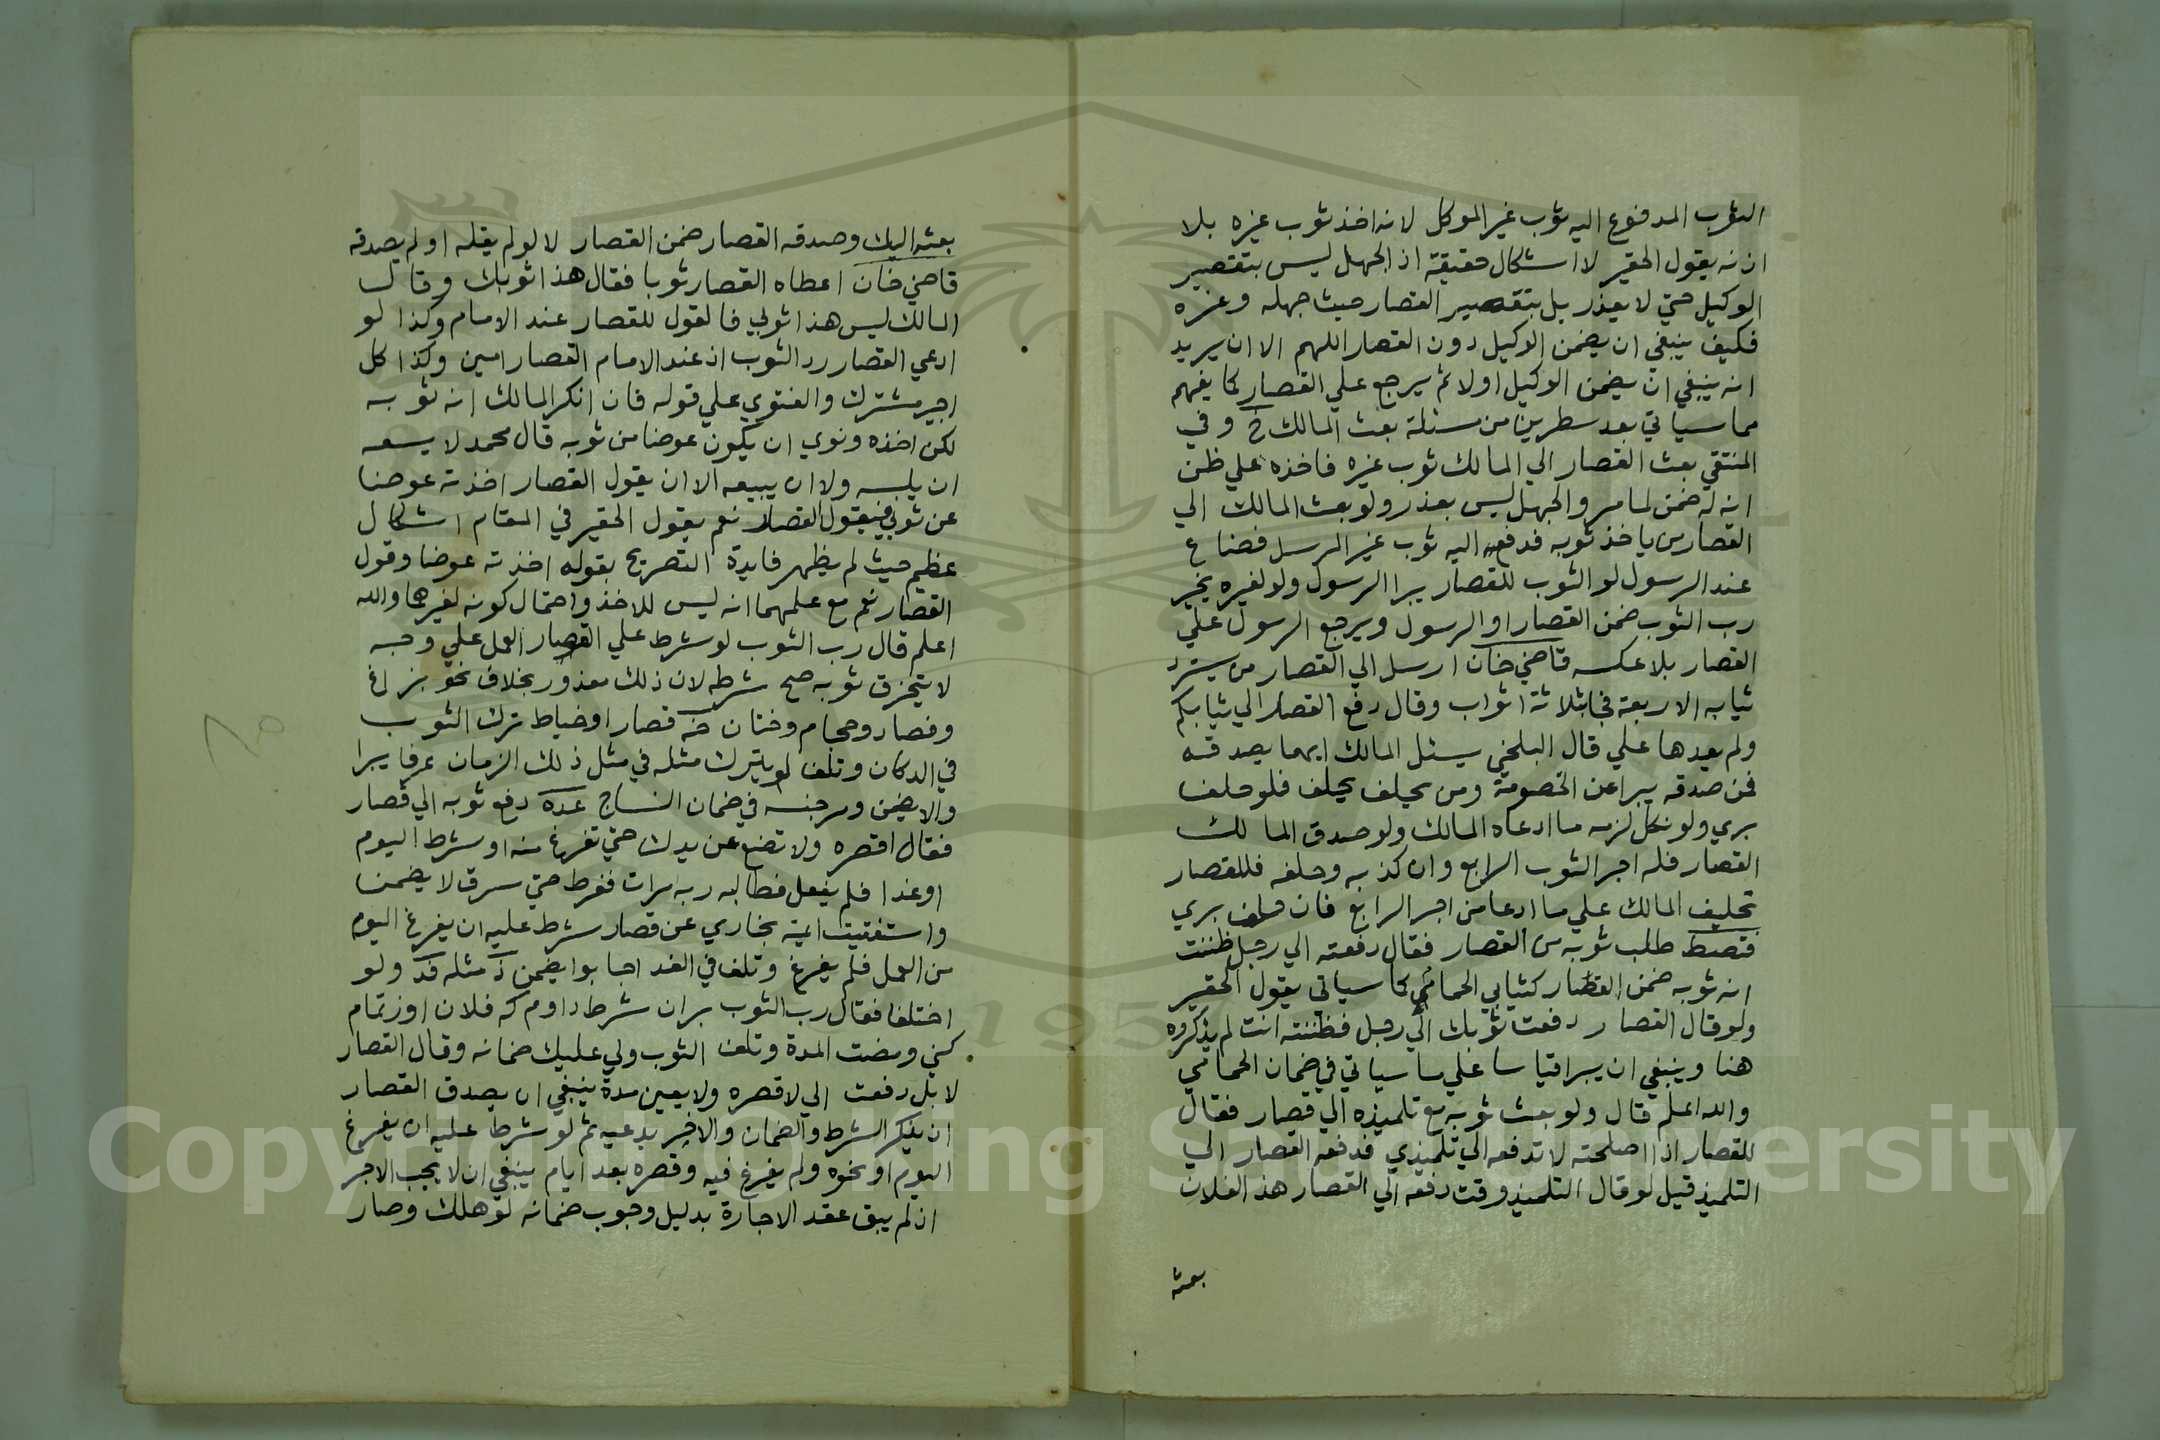 الثوب المدفوع اليه ثوب غير الموكل لانه اخذ ثوب غيره بلا
اذنه يقول الحقير لا اشكال حقيقة اذ الجهل ليس بتقصير
الوكيل حتي لا يعذر بل بتقصير القصار حيث جهله وغره
فكيف ينبغي ان يضمن الوكيل دون القصار اللهم الا ان يريد
انه ينبغي ان يضمن الوكيل اولا ثم يرجع علي القصار كما يفهم
مما سياتي بعد سطرين من مسئلة بعث المالك خ وفي
المنتقي بعث القصار الي المالك ثوب غيره فاخذه علي ظن
انه له ضمن لما مر والجهل ليس بعذر ولو بعث المالك الي
القصار من ياخذ ثوبه فدفع اليه ثوب غير المرسل فضاع
عند الرسول لو الثوب للقصار يبرا الرسول ولو لغيره يخير
رب الثوب ضمن القصار او الرسول ويرجع الرسول علي
القصار بلا عكسه قاضي خان ارسل الي القصار من يسترد
ثيابه الاربعة فجا بثلاثة اثواب وقال دفع القصار الي ثيابكم
ولم يعدها علي قال البلخي يسئل المالك ايهما يصدقه
فمن صدقه يبرا عن الخصومة ومن يحلف يحلف فلو حلف
بري ولو نكل لزمه ما ادعاه المالك ولو صدق المالك
القصار فله اجر الثوب الرابع وان كذبه وحلفه فللقصار
تحليف المالك علي ما ادعا من اجر الرابع فان حلف بري
فقصط طلب ثوبه من القصار فقال دفعته الي رجل ظننت
انه ثوبه ضمن القصار كثيابي الحمامي كما سياتي يقول الحقير
ولو قال القصار دفعت ثوبك الي رجل فظننته انت لم يذكروه
هنا وينبغي ان يبرا قياسا علي ما سياتي في ضمان الحمامي
والله اعلم قال ولو بعث ثوبه مع تلميذه الي قصار فقال
للقصار اذا اصلحته لا تدفعه الي تلميذي فدفعه القصار الي
التلميذ قيل لو قال التلميذ وقت دفعه الي القصار هذا لفلان
بعثه
بعثه اليك وصدقه القصار ضمن القصار لا لو لم يقله او لم يصدقه
قاضي خان اعطاه القصار ثوبا فقال هذا ثوبك وقال
المالك ليس هذا ثوبي فالقول للقصار عند الامام وكذا لو
ادعي القصار رد الثوب اذ عند الامام القصار امين وكذا كل
اجير مشترك والفتوي علي قوله فان انكر المالك انه ثوبه
لكن اخذه ونوي ان يكون عوضا من ثوبه قال محمد لا يسعه
ان يلبسه ولا ان يبيعه الا ان يقول القصار اخذته عوضا
عن ثوبي فيقول القصار نعم يقول الحقير في المقام اشكال
عظيم حيث لم يظهر فايدة التصريح بقوله اخذته عوضا وقول
القصار نعم مع علمهما انه ليس للاخذ واحتمال كونه لغيرهما والله
اعلم قال رب الثوب لو شرط علي القصار العمل علي وجه
لا يتخرق ثوبه صح شرطه لان ذلك مقدور بخلاف نحو بزاغ
وفصاد وحجام وختان خه قصار او خياط ترك الثوب
في الدكان وتلف لو يترك مثله في مثل ذلك الزمان عرفا يبرا
والا يضمن ومر جنسه في ضمان النساج عده دفع ثوبه الي قصار
فقال اقصره ولا تضع عن يدك حتي تفرغ منه او شرط اليوم
او غدا فلم يفعل فطالبه ربه مرات ففرط حتي سرق لا يضمن
واستفتيت ايمة بخاري عن قصار شرط عليه ان يفرغ اليوم
من العمل فلم يفرغ وتلف في الغد اجابوا يضمن ذ مثله فد ولو
اختلفا فقال رب الثوب بران شرط داوم كه فلان اوز تمام
كني ومضت المدة وتلف الثوب ولي عليك ضمانه وقال القصار
لا بل دفعت الي لاقصره ولا يعين مدة ينبغي ان يصدق القصار
اذ ينكر الشرط والضمان والاخر يدعيه ثم لو شرط عليه ان يفرغ
اليوم او نحوه ولم يفرغ فيه وقصره بعد ايام ينبغي ان لا يجب الاجر
اذ لم يبق عقد الاجارة بدليل وجوب ضمانه لو هلك وصار
Copyright © King Saud University
1957